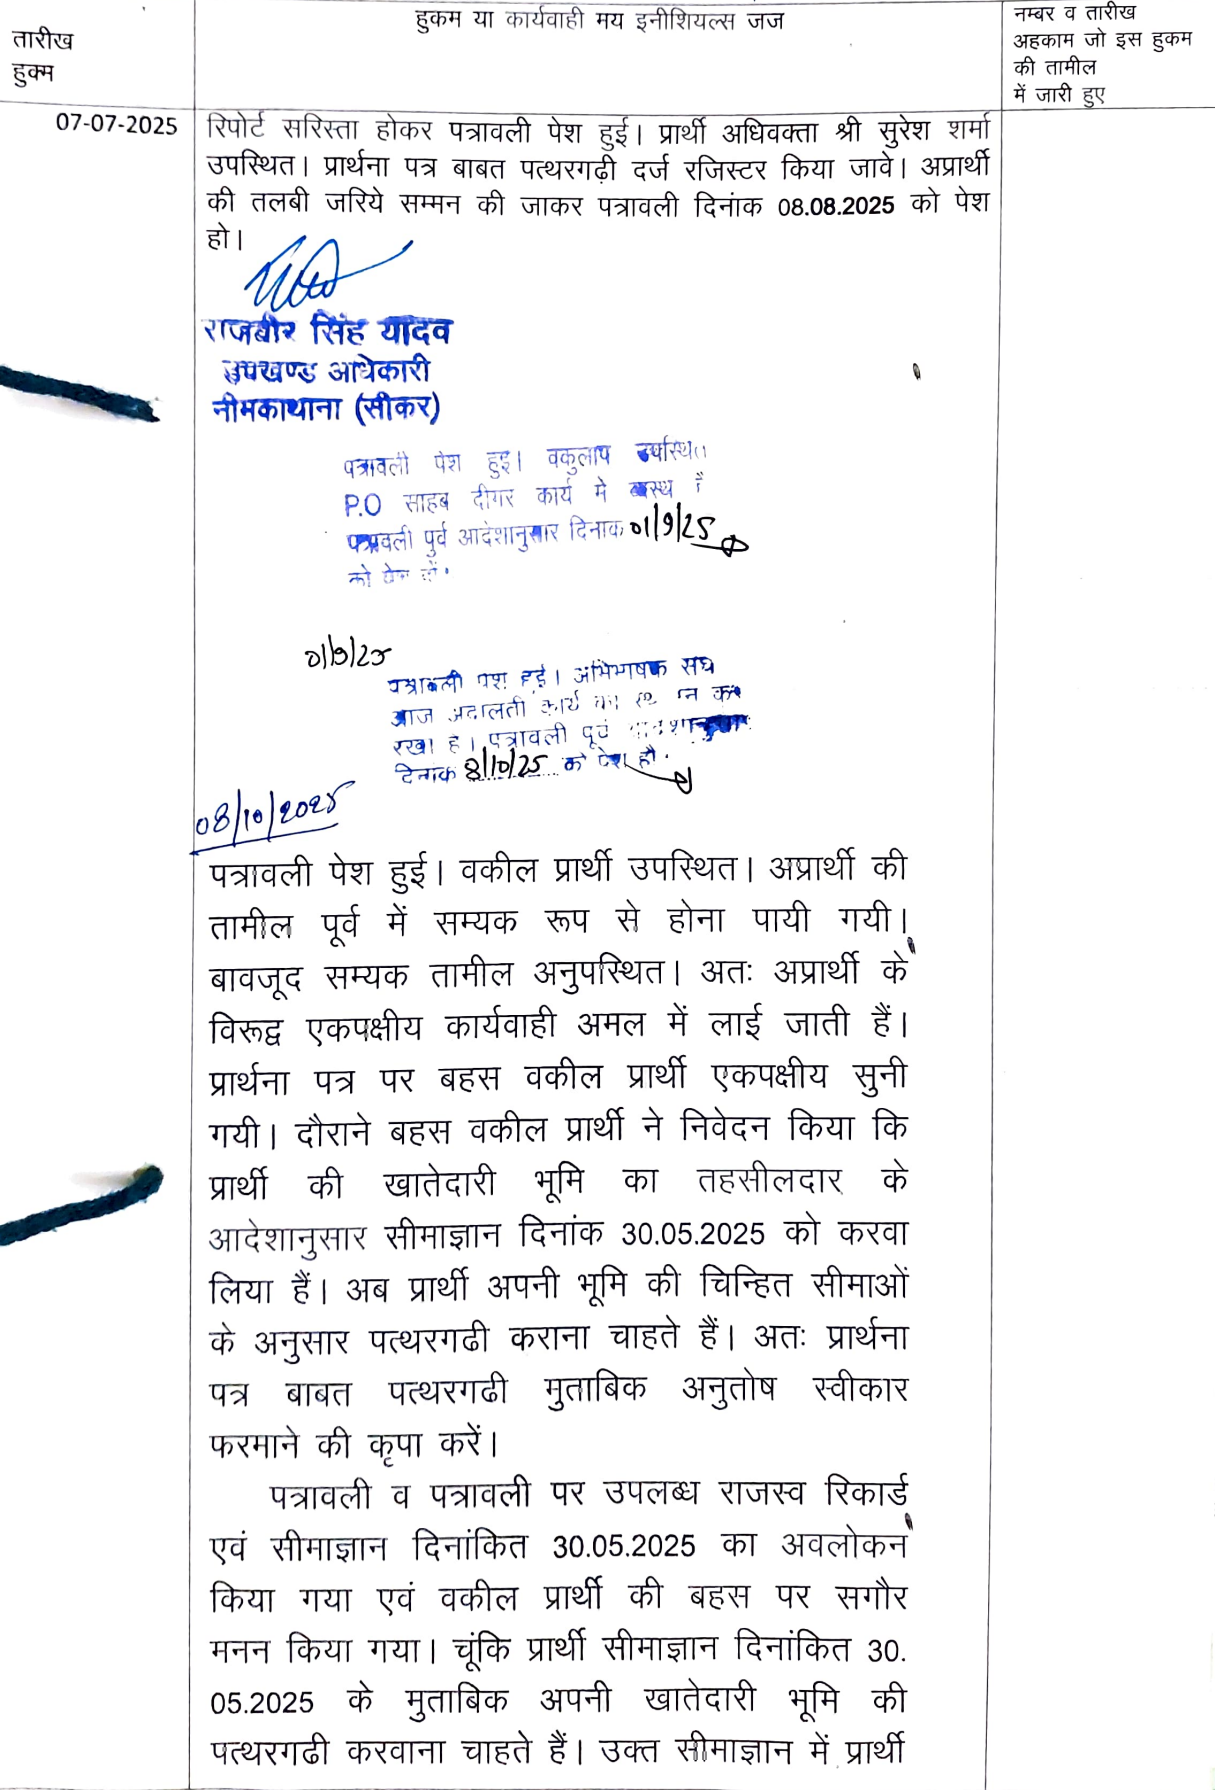 तारीख
हुक्म
हुकम या कार्यवाही मय इनीशियल्स जज
नम्बर व तारीख
अहकाम जो इस हुकम
की तामील
में जारी हुए
07-07-2025
रिपोर्ट सरिस्ता होकर पत्रावली पेश हुई। प्रार्थी अधिवक्ता श्री सुरेश शर्मा
उपस्थित। प्रार्थना पत्र बाबत पत्थरगढ़ी दर्ज रजिस्टर किया जावे। अप्रार्थी
की तलबी जरिये सम्मन की जाकर पत्रावली दिनांक 08.08.2025 को पेश
हो।
राजबीर सिंह यादव
उपखण्ड अधिकारी
नीमकाथाना (सीकर)
पत्रावली पेश हुई। वकुलाप उपस्थित
P.O साहब दीगर कार्य मे
पत्रावली पुर्व आदेशानुसार दिनाक 01/9/25
को पेश
01/9/25
पत्रावली पेश हुई। अभिभाषक संघ
आज अदालती कार्य का
रखा है। पत्रावली पूर्व
दिनाक 8/10/25 को पेश हो।
08/10/2025
पत्रावली पेश हुई। वकील प्रार्थी उपस्थित। अप्रार्थी की
तामील पूर्व में सम्यक रूप से होना पायी गयी।
बावजूद सम्यक तामील अनुपस्थित। अतः अप्रार्थी के
विरूद्व एकपक्षीय कार्यवाही अमल में लाई जाती हैं।
प्रार्थना पत्र पर बहस वकील प्रार्थी एकपक्षीय सुनी
गयी। दौराने बहस वकील प्रार्थी ने निवेदन किया कि
प्रार्थी की खातेदारी भूमि का तहसीलदार के
आदेशानुसार सीमाज्ञान दिनांक 30.05.2025 को करवा
लिया हैं। अब प्रार्थी अपनी भूमि की चिन्हित सीमाओं
के अनुसार पत्थरगढी कराना चाहते हैं। अतः प्रार्थना
पत्र बाबत पत्थरगढी मुताबिक अनुतोष स्वीकार
फरमाने की कृपा करें।
पत्रावली व पत्रावली पर उपलब्ध राजस्व रिकार्ड
एवं सीमाज्ञान दिनांकित 30.05.2025 का अवलोकन
किया गया एवं वकील प्रार्थी की बहस पर सगौर
मनन किया गया। चूंकि प्रार्थी सीमाज्ञान दिनांकित 30.
05.2025 के मुताबिक अपनी खातेदारी भूमि की
पत्थरगढी करवाना चाहते हैं। उक्त सीमाज्ञान में प्रार्थी